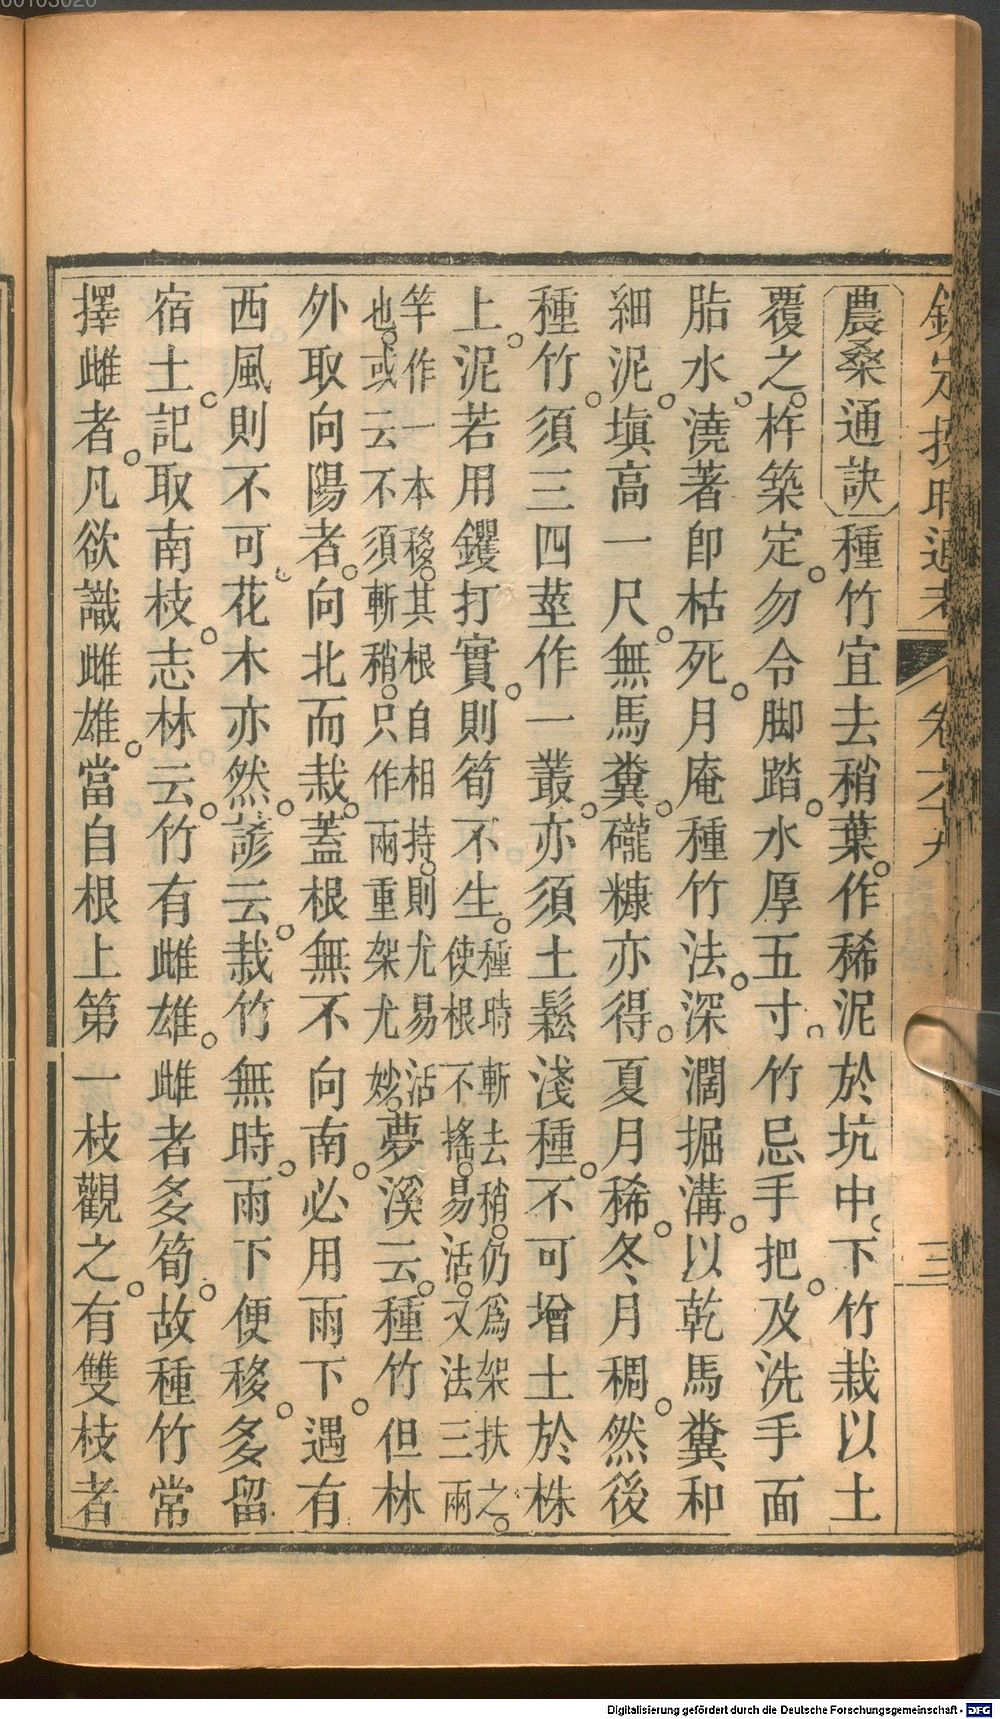 欽定授時通考 卷六十九 三
農桑通訣種竹宜去稍葉。作稀泥於坑中。下竹栽以土
覆之。杵築定。勿令脚踏。水厚五寸。竹忌手把。及洗手面
脂水。澆著卽枯死。月庵種竹法。深濶掘溝。以乾馬糞和
細泥。塡高一尺。無馬糞。礲糠亦得。夏月稀。冬月稠。然後
種竹。須三四莖作一叢。亦須土鬆淺種。不可增土於株
上。泥若用钁打實。則筍不生。種時斬去稍。仍爲架扶之。
使根不搖。易活。又法三兩
竿作一本移。其根自相持。則尤易活
也。或云不須斬稍。只作兩重架尤妙。夢溪云。種竹但林
外取向陽者。向北而栽。蓋根無不向南。必用雨下。遇有
西風則不可。花木亦然。諺云。栽竹無時。雨下便移。多留
宿土。記取南枝。志林云。竹有雌雄。雌者多筍。故種竹常
擇雌者。凡欲識雌雄。當自根上第一枝觀之。有雙枝者
00103020
Digitalisierung gefördert durch die Deutsche Forschungsgemeinschaft - DFG